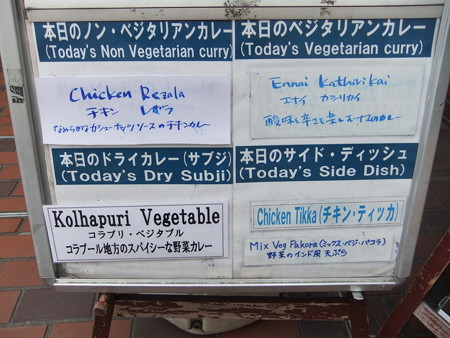 本日のノン・ベジタリアンカレー
(Today's Non Vegetarian curry)
Chicken Rezala
チキン レザラ
なめらかなカシューナッツソースのチキンカレー
本日のベジタリアンカレー
(Today's Vegetarian curry)
Ennai Kathirikai
エナイ カシリカイ
酸味と辛さを楽しむナスのカレー
本日のドライカレー(サブジ)
(Today's Dry Subji)
Kolhapuri Vegetable
コラプリ・ベジタブル
コラプール地方のスパイシーな野菜カレー
本日のサイド・ディッシュ
(Today's Side Dish)
Chicken Tikka(チキン・ティッカ)
Mix Veg Pakora(ミックス・ベジ・パコラ)
野菜のインド風天ぷら